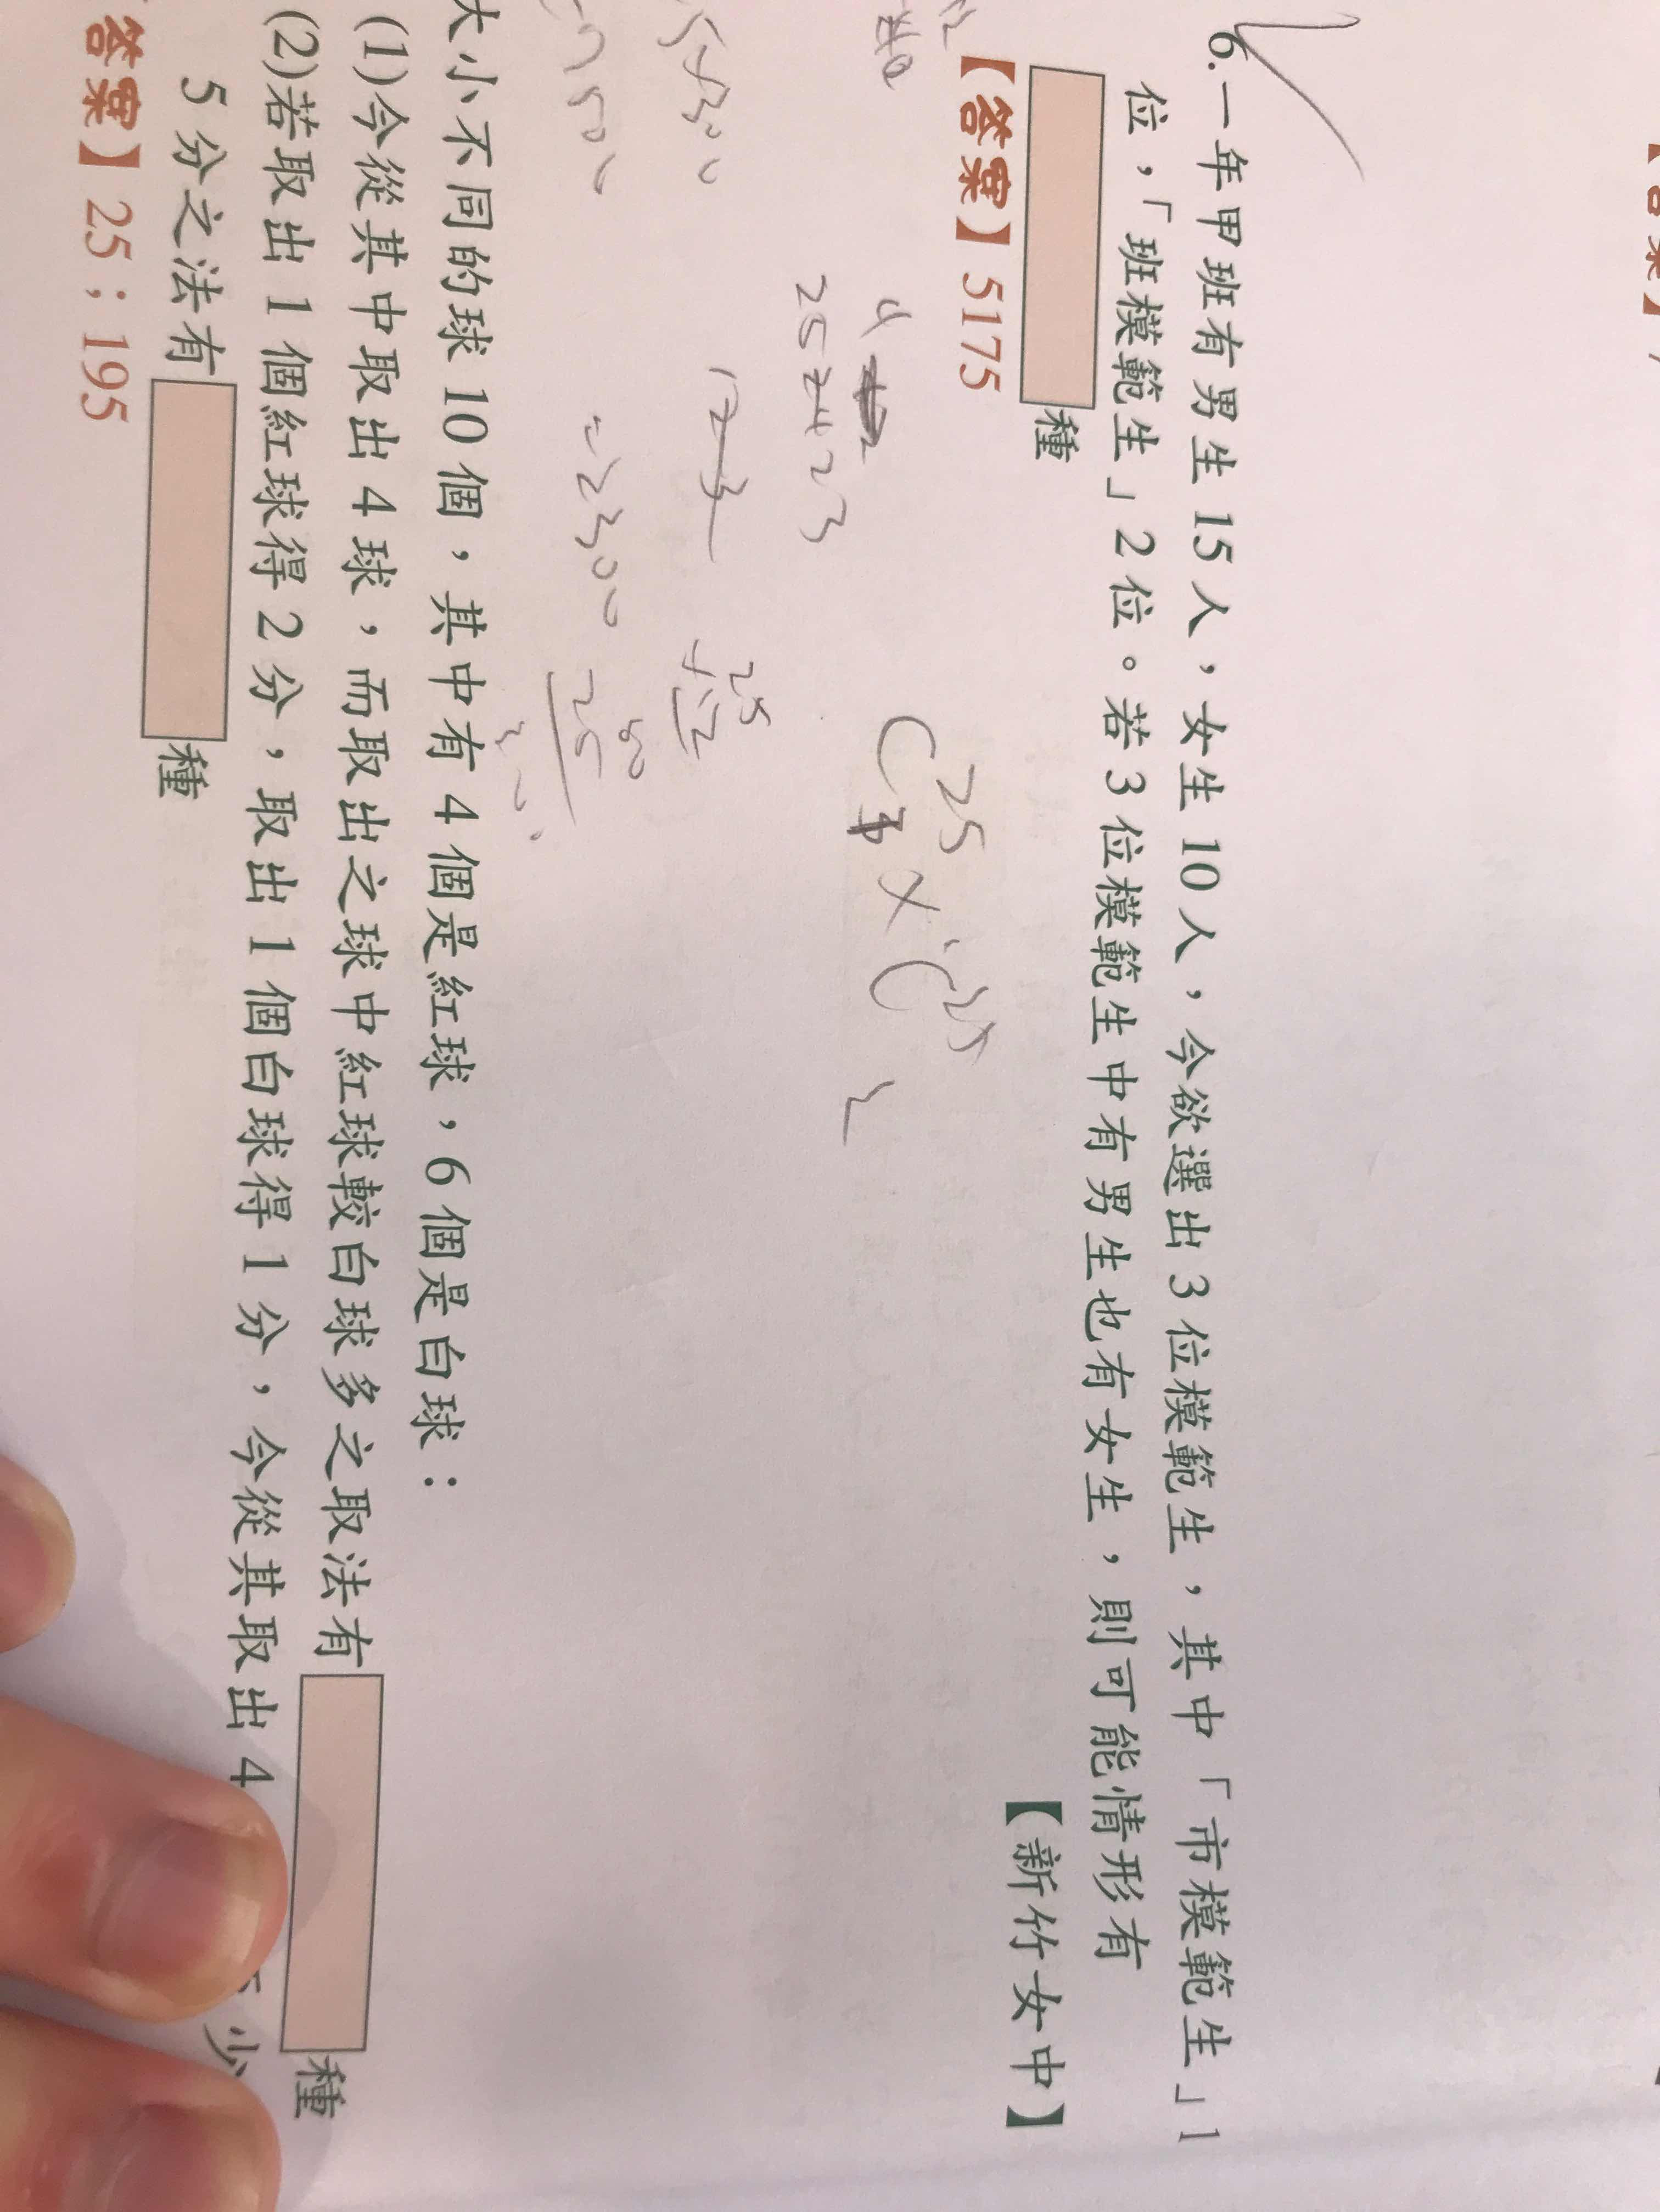 6.一年甲班有男生15人，女生10人，今欲選出3位模範生，其中「市模範生」1
位，「班模範生」2位。若3位模範生中有男生也有女生，則可能情形有
種
【新竹女中】
【答案】5175
C 25 × C 25
2
25 24 23
25
12
2300
25
大小不同的球10個，其中有4個是紅球，6個是白球：
(1)今從其中取出4球，而取出之球中紅球較白球多之取法有
種
(2)若取出1個紅球得2分，取出1個白球得1分，今從其取出4
少
5分之法有
種
答案】25；195